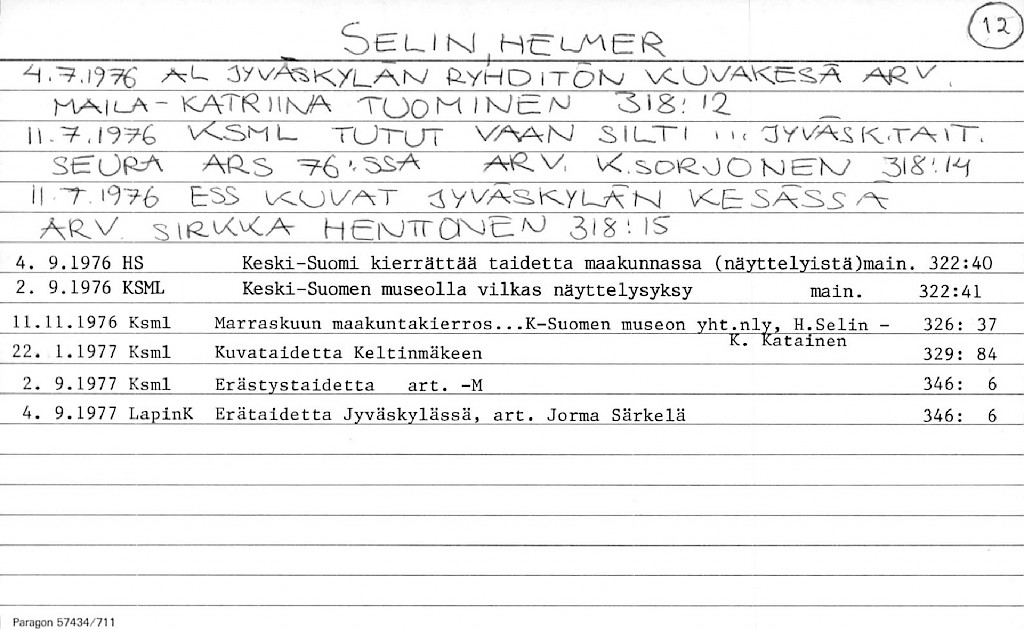 12
SELIN, HELMER
4.7.1976 AL JYVÄSKYLÄN RYHDITÖN KUVAKESÄ ARV.
MAILA-KATRIINA TUOMINEN 318:12
11.7.1976 KSML TUTUT VAAN SILTI ... JYVÄSK.TAIT.
SEURA ARS 76:SSA ARV. K.SORJONEN 318:14
11.7.1976 ESS KUVAT JYVÄSKYLÄN KESÄSSÄ
ARV. SIRKKA HENTTONEN 318:15
4. 9.1976 HS Keski-Suomi kierrättää taidetta maakunnassa (näyttelyistä)main. 322:40
2. 9.1976 KSML Keski-Suomen museolla vilkas näyttelysyksy main. 322:41
11.11.1976 Ksml Marraskuun maakuntakierros...K-Suomen museon yht.nly, H.Selin - 326: 37
K. Katainen
22. 1.1977 Ksml Kuvataidetta Keltinmäkeen 329: 84
2. 9.1977 Ksml Erästystaidetta art. -M 346: 6
4. 9.1977 LapinK Erätaidetta Jyväskylässä, art. Jorma Särkelä 346: 6
Paragon 57434/711